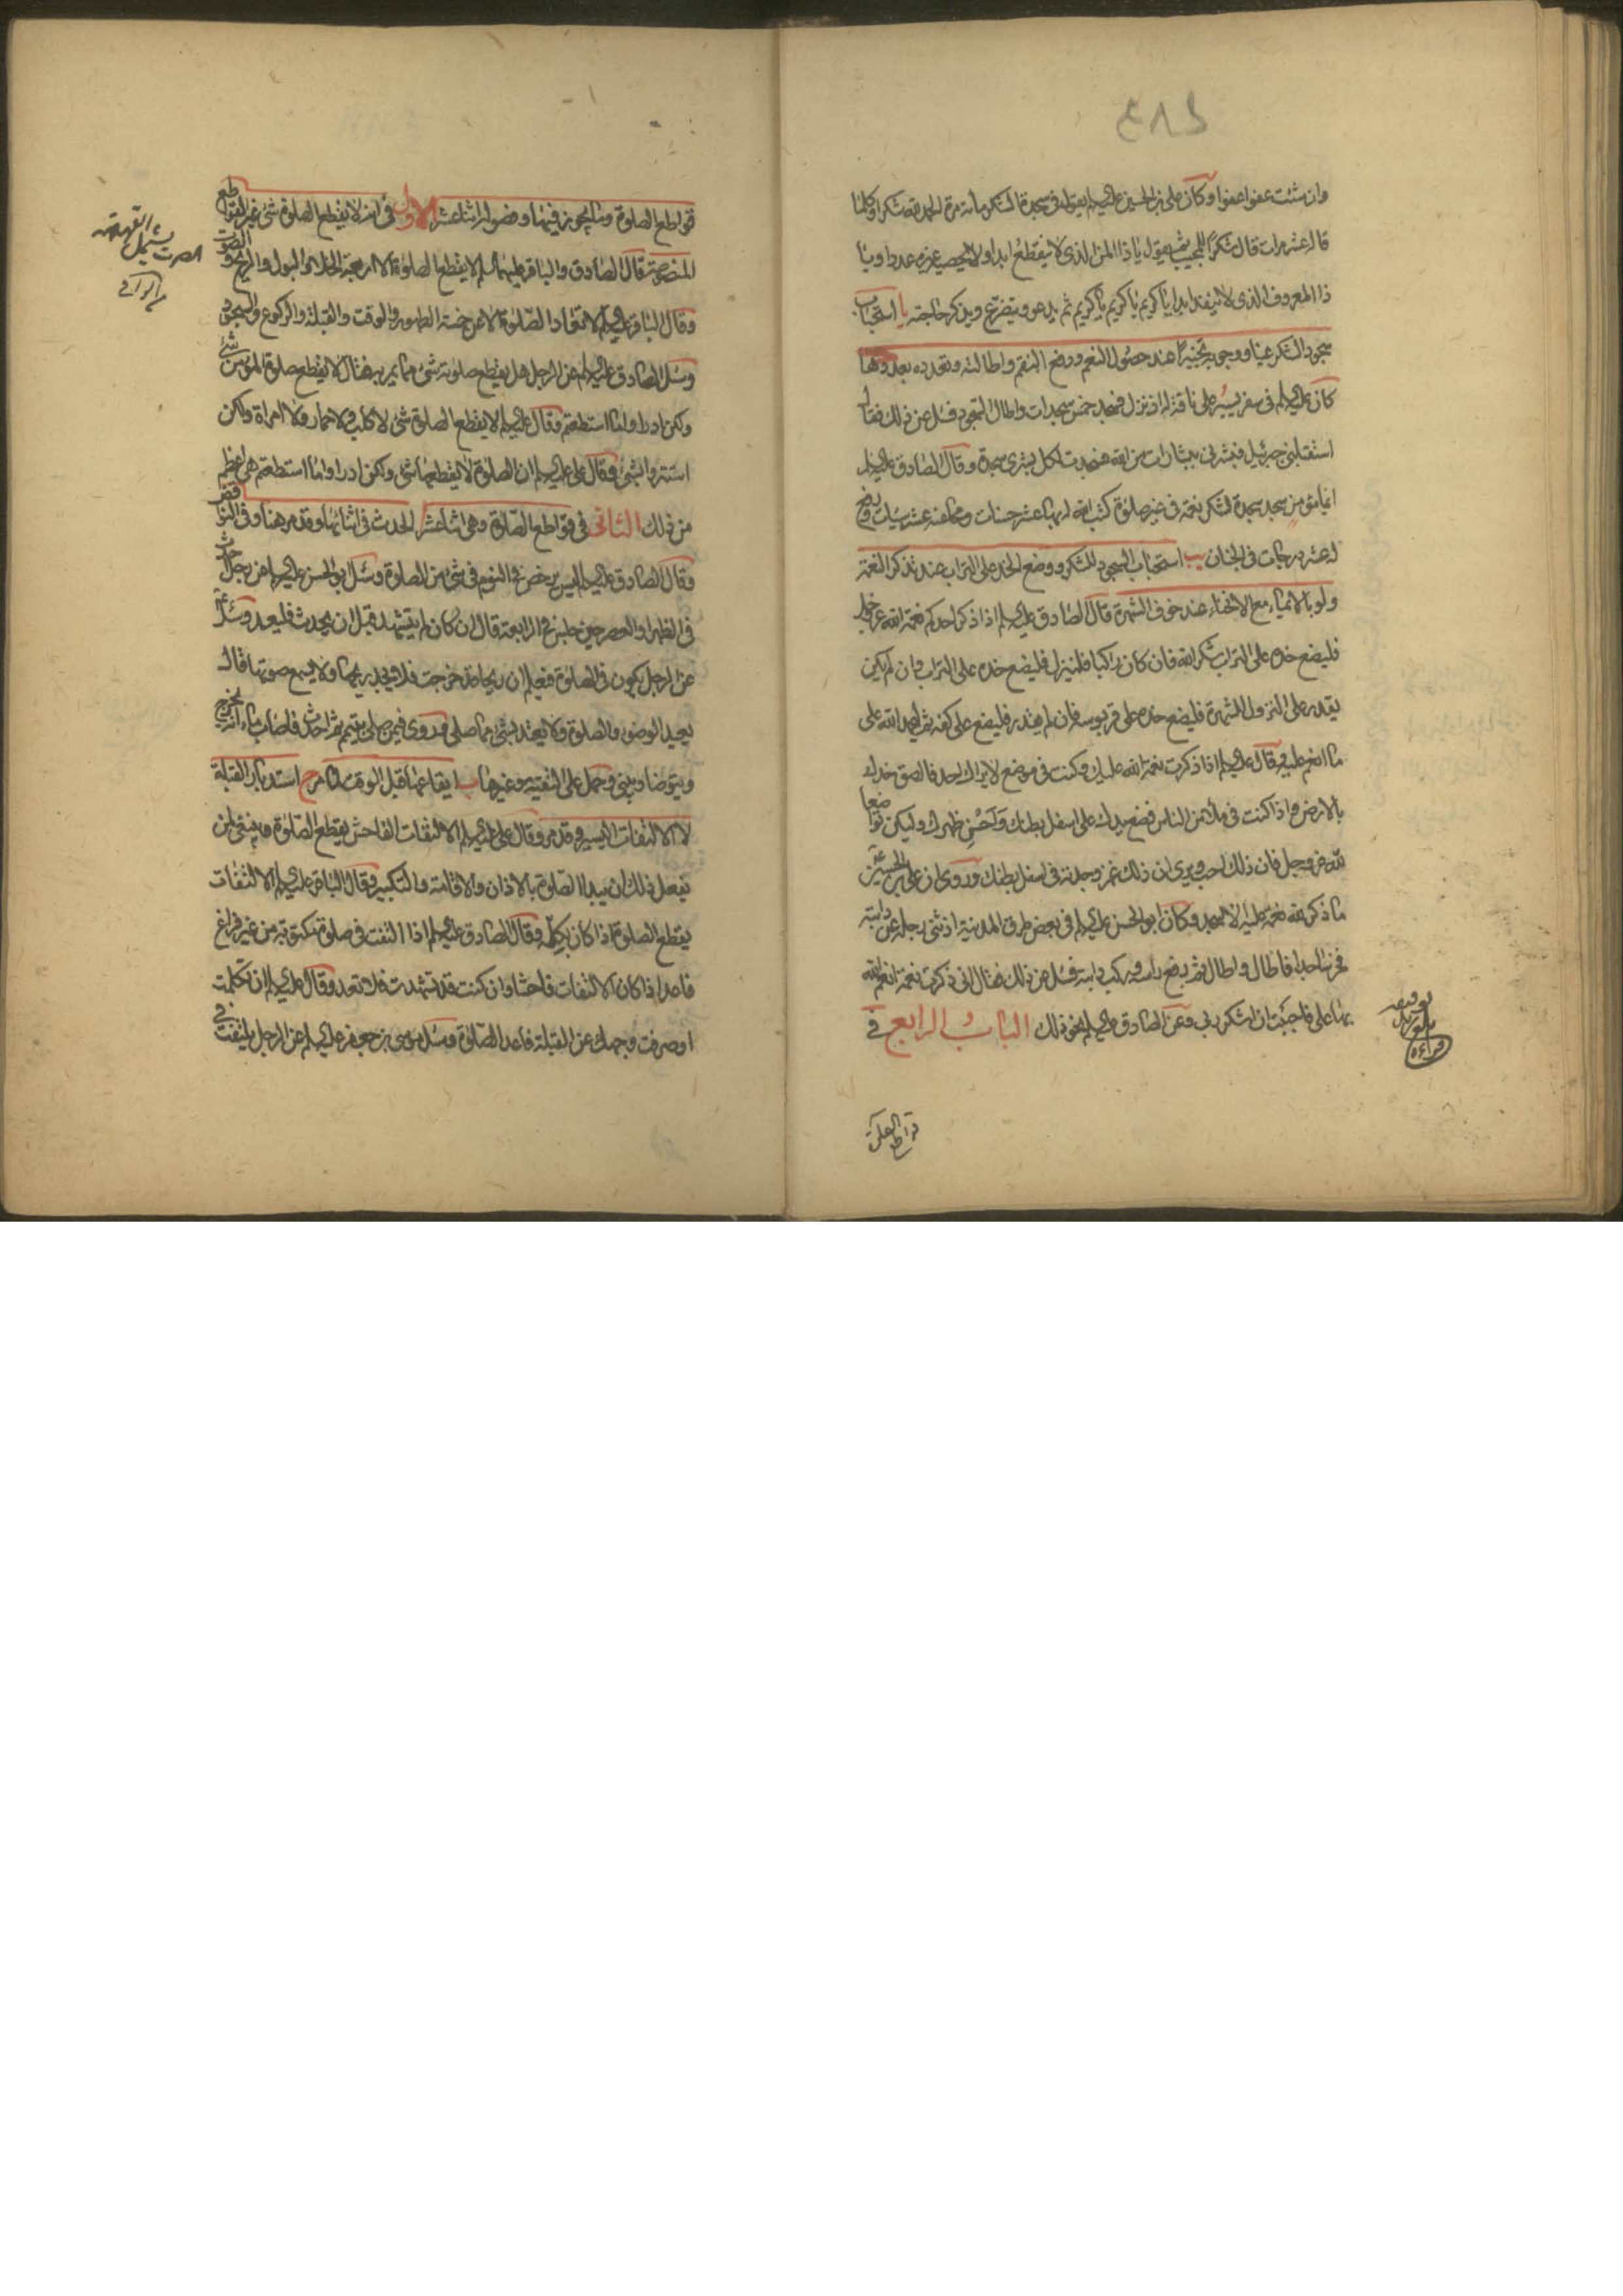 وان شئت عفوا عفوا وكان علي بن الحسين عليه السلام يقول في سجدة الشكر مائة مرة الحمد لله شكرا وكلما
قال عشر مرات قال شكرا للمجيب ثم يقول يا ذا المن الذي لا ينقطع ابدا ولا يحصيه غيره عددا ويا
ذا المعروف الذي لا ينفد ابدا يا كريم يا كريم يا كريم ثم يدعو ويتضرع ويذكر حاجته يا استحباب
سجود الشكر عند حصول النعم ودفع النقم واطالته وتعدده بعددها
كان عليه السلام في سفر يسير على ناقة له اذ نزل فسجد خمس سجدات واطال السجود فسئل عن ذلك فقال
استقبلني جبرئيل فبشرني ببشارات من الله فسجدت لكل بشرى سجدة وقال الصادق عليه السلام
ايما مؤمن سجد سجدة لشكر نعمة في غير صلوة كتب الله له بها عشر حسنات ومحا عنه عشر سيئات ورفع
له عشر درجات في الجنان يب استحباب السجود للشكر ووضع الخد على التراب عند تذكر النعمة
ولو بالايماء مع الانحناء عند خوف الشهرة قال الصادق عليه السلام اذا ذكر احدكم نعمة الله عز وجل
فليضع خده على التراب شكرا لله فان كان راكبا فلينزل فليضع خده على التراب وان لم يكن
يقدر على النزول للشهرة فليضع خده على قربوسه فان لم يقدر فليضع على كفه ثم ليحمد الله على
ما انعم عليه وقال عليه السلام اذا ذكرت نعمة الله عليك وكنت في موضع لا يراك احد فالصق خدك
بالارض واذا كنت في ملأ من الناس فضع يدك على اسفل بطنك واحن ظهرك وليكن تواضعا
لله عز وجل فان ذلك احب ويرى ان ذلك غمز وجدته في اسفل بطنك وروى ان علي بن الحسين
ما ذكر لله نعمة عليه الا سجد وكان ابو الحسن عليه السلام في بعض طرق المدينة اذ ثنى رجله عن دابته
فخر ساجدا فاطال واطال ثم رفع راسه وركب دابته فسئل عن ذلك فقال اني ذكرت نعمة انعم الله
بها على فاحببت ان اشكر ربي وعن الصادق عليه السلام نحو ذلك الباب الرابع في
قواطع الصلوة
قواطع الصلوة وما يجوز فيها وفصوله اثنا عشر الاول في انه لا يقطع الصلوة شئ غير القواطع
المنصوصة قال الصادق والباقر عليهما السلام لا يقطع الصلوة الا اربعة الخلاء والبول والريح والصوت
وقال الباقر عليه السلام لا تعاد الصلوة الا من خمسة الطهور والوقت والقبلة والركوع والسجود
وسئل الصادق عليه السلام عن الرجل هل يقطع صلوته شئ مما يمر به فقال لا يقطع صلوة المؤمن شئ
ولكن ادراوا ما استطعتم وقال عليه السلام لا يقطع الصلوة شئ لا كلب ولا حمار ولا امراة ولكن
استتروا بشئ وقال علي عليه السلام ان الصلوة لا يقطعها شئ ولكن ادراوا ما استطعتم هي اعظم
من ذلك الثاني في قواطع الصلوة وهي اثنا عشر ا الحدث في اثنائها وقد مر هنا وفي النواقض
وقال الصادق عليه السلام ليس يرخص في النوم في شئ من الصلوة وسئل ابو الحسن عليه السلام عن رجل احدث
في الظهر او العصر حين جلس في الرابعة قال ان كان لم يتشهد قبل ان يحدث فليعد وسئل عليه السلام
عن الرجل يكون في الصلوة فيعلم ان ريحا قد خرجت فلا يجد ريحها ولا يسمع صوتها قال
يعيد الوضوء والصلوة ولا يعتد بشئ مما صلى وروى فيمن صلى بتيمم ثم احدث فاصاب ماء انه يخرج
ويتوضا ويبني وحمل على التقية وغيرها ب ايقاعها قبل الوقت لما مر ج استدبار القبلة
لا الالتفات اليسير وقد مر وقال علي عليه السلام الالتفات الفاحش يقطع الصلوة وينبغي لمن
يفعل ذلك ان يبدا الصلوة بالاذان والاقامة والتكبير وقال الباقر عليه السلام الالتفات
يقطع الصلوة اذا كان بكله وقال الصادق عليه السلام اذا التفت في صلوة مكتوبة من غير فراغ
فاعد اذا كان الالتفات فاحشا وان كنت قد تشهدت فلا تعد وقال عليه السلام ان تكلمت
او صرفت وجهك عن القبلة فاعد الصلوة وسئل موسى بن جعفر عليه السلام عن الرجل يلتفت في